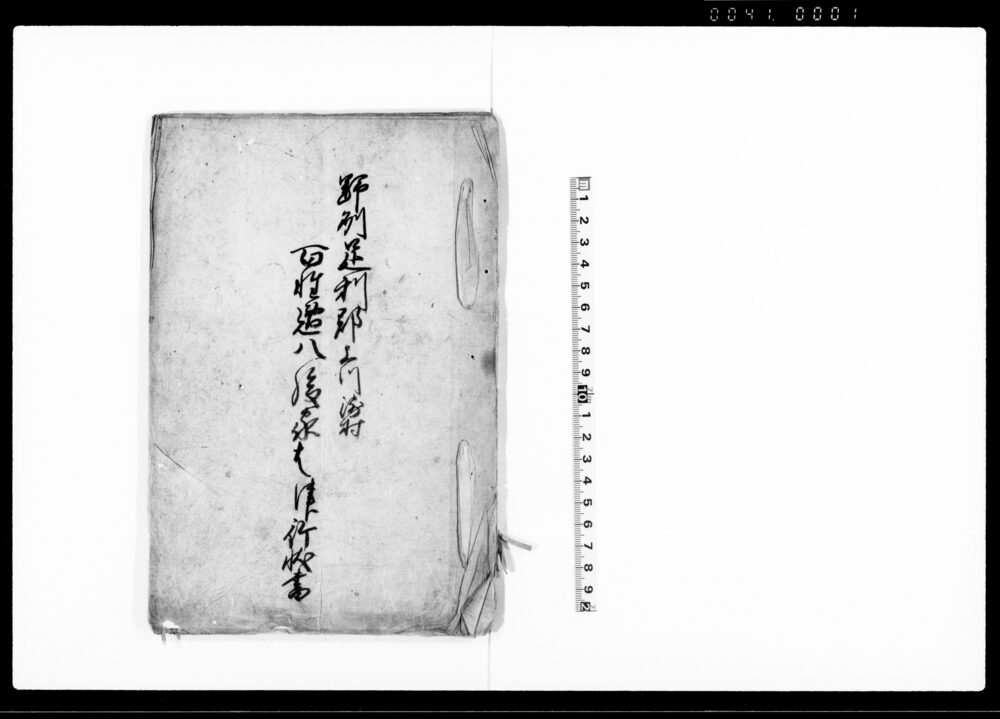 0041. 0001
野州足利郡上川渕村
百姓遊八後家
行状書
1 2 3 4 5 6 7 8 9 10 1 2 3 4 5 6 7 8 9 2